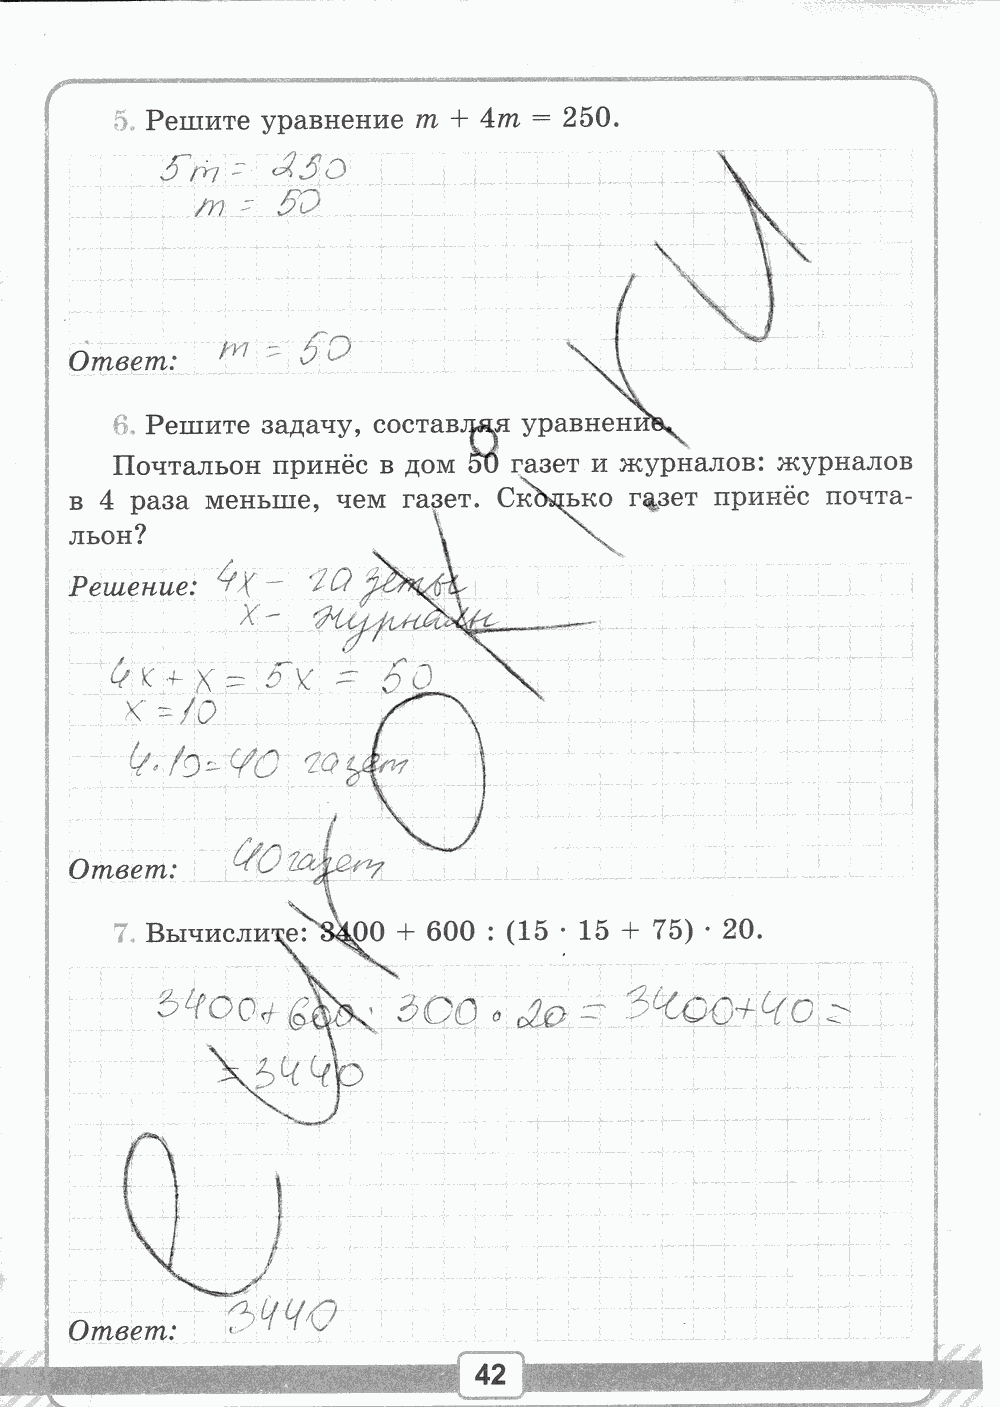 5. Решите уравнение m + 4m = 250.
5m = 250
m = 50
Ответ: m = 50
6. Решите задачу, составляя уравнение.
Почтальон принёс в дом 50 газет и журналов: журналов
в 4 раза меньше, чем газет. Сколько газет принёс почта-
льон?
Решение: 4x - газеты
x - журналы
4x + x = 5x = 50
x = 10
4 · 10 = 40 газет
Ответ: 40 газет
7. Вычислите: 3400 + 600 : (15 · 15 + 75) · 20.
3400 + 600 : 300 · 20 = 3400 + 40 =
= 3440
Ответ: 3440
42
euroki.ru